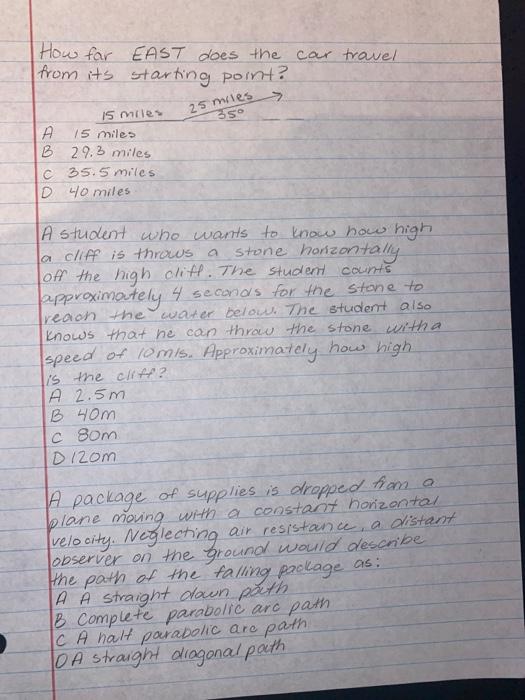 How far EAST does the car travel
from its starting point?
15 miles 25 miles 35°
A 15 miles
B 29.3 miles
C 35.5 miles
D 40 miles
A student who wants to know how high
a cliff is throws a stone horizontally
off the high cliff. The student counts
approximately 4 seconds for the stone to
reach the water below. The student also
knows that he can throw the stone with a
speed of 10m/s. Approximately how high
is the cliff?
A 2.5m
B 40m
C 80m
D 120m
A package of supplies is dropped from a
plane moving with a constant horizontal
velocity. Neglecting air resistance, a distant
observer on the ground would describe
the path of the falling package as:
A A straight down path
B Complete parabolic arc path
C A half parabolic arc path
D A straight diagonal path